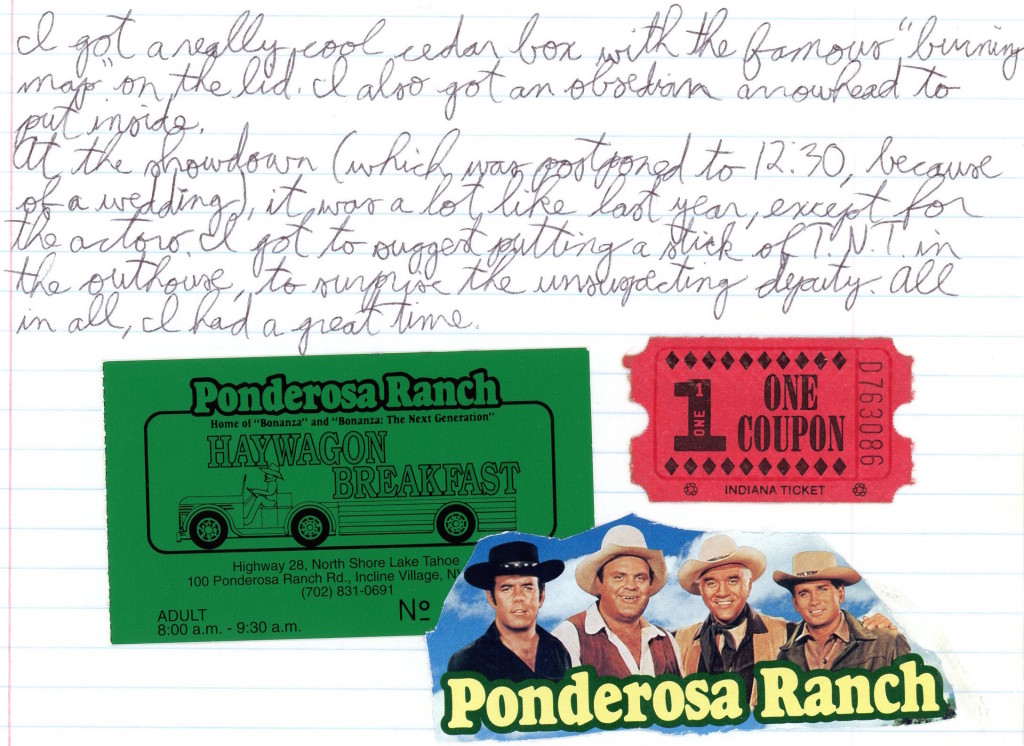 I got a really cool cedar box with the famous "burning
map" on the lid. I also got an obsidian arrowhead to
put inside.
At the showdown (which was postponed to 12:30, because
of a wedding), it was a lot like last year, except for
the actors. I got to suggest putting a stick of T.N.T. in
the outhouse, to surprise the unsuspecting deputy. All
in all, I had a great time.
Ponderosa Ranch
Home of "Bonanza" and "Bonanza: The Next Generation"
HAYWAGON
BREAKFAST
Highway 28, North Shore Lake Tahoe
100 Ponderosa Ranch Rd., Incline Village,
(702) 831-0691
ADULT
8:00 a.m. - 9:30 a.m.
№
1
ONE
1
ONE
COUPON
D763086
INDIANA TICKET
Ponderosa Ranch